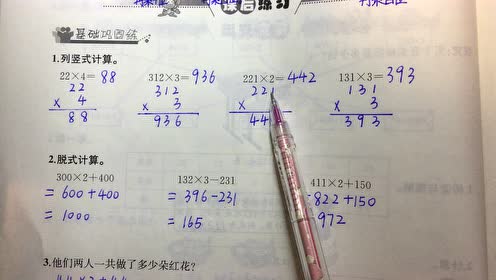 课后练习
基础巩固练
1.列竖式计算。
22×4=88 312×3=936 221×2=442 131×3=393
22 312 221 131
× 4 × 3 × × 3
88 936 44 393
2.脱式计算。
300×2+400 132×3−231 411×2+150
=600+400 =396-231 822+150
=1000 =165 972
3.他们两人一共做了多少朵红花?